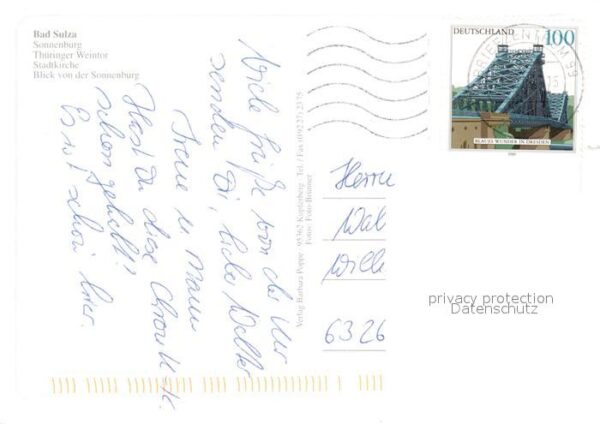 Bad Sulza
Sonnenburg
Thüringer Weintor
Stadtkirche
Blick von der Sonnenburg
Viele Grüße von der Kur
senden Dir, lieber Walter
Irene u. Mann
Hast Du diese Chronik-K.
schon gehabt?
Es ist schön hier.
Verlag Barbara Poppe · 95362 Kupferberg · Tel. / Fax (09227) 2375
Fotos: Foto-Brunner
DEUTSCHLAND 100
BLAUES WUNDER IN DRESDEN
BRIEFZENTRUM 99
Herrn
Wal
Wille
6326
privacy protection
Datenschutz